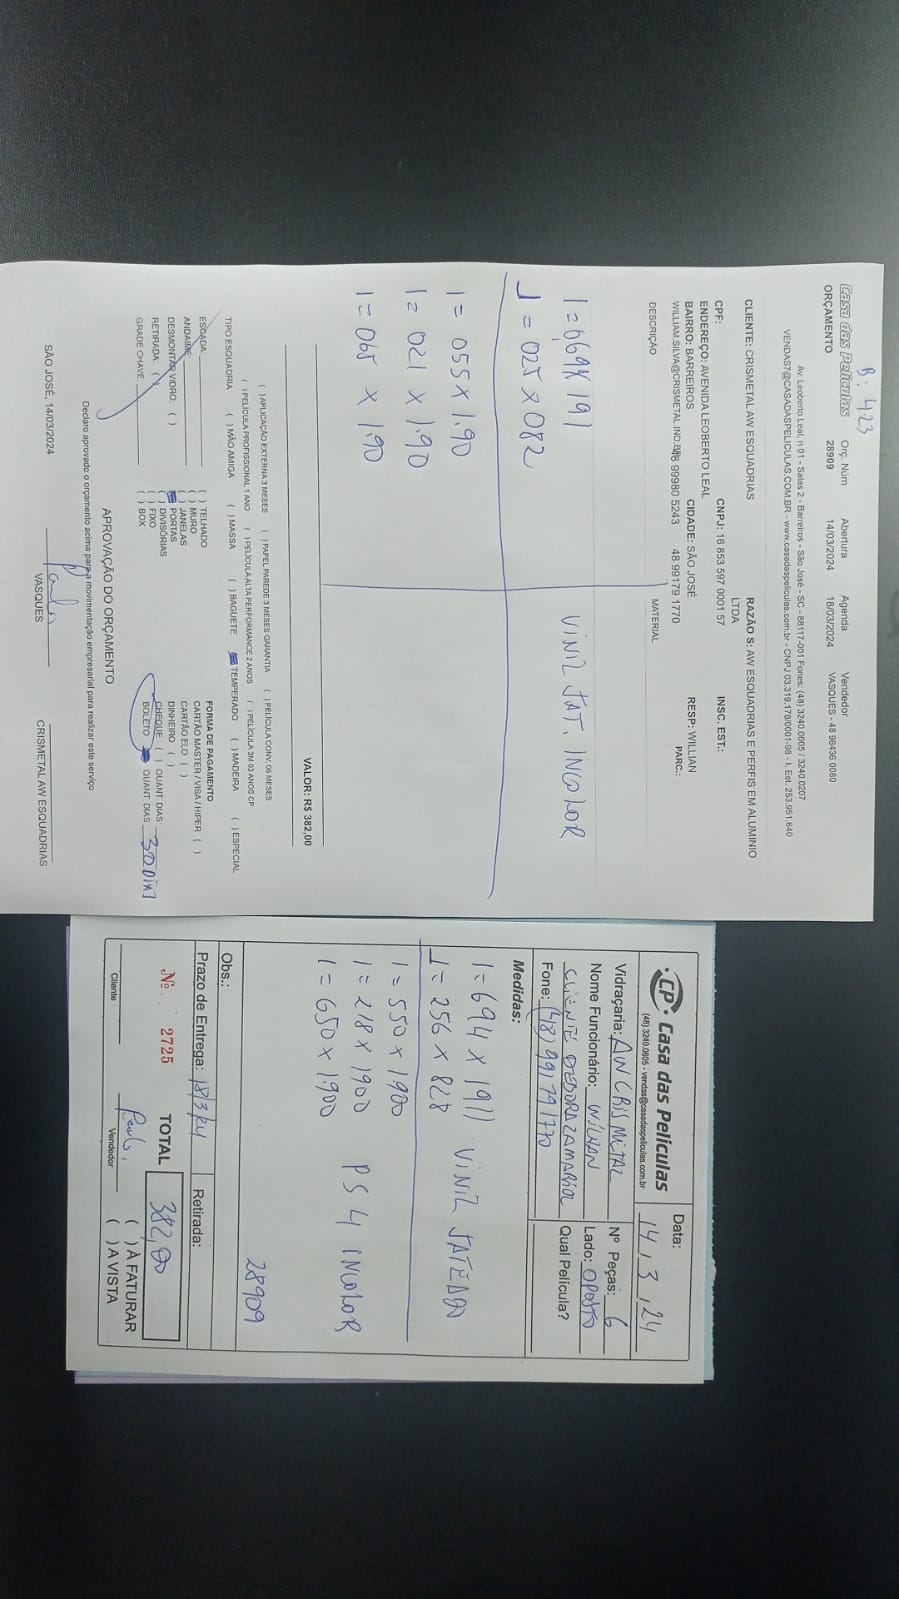 B: 423
Casa das Películas
ORÇAMENTO
Orç. Núm
28909
Abertura
14/03/2024
Agenda
18/03/2024
Vendedor
VASQUES - 48 98436 0080
Av. Leoberto Leal, n 01 - Salas 2 - Barreiros - São José - SC - 88117-001 Fones: (48) 3240.0605 / 3240.0207
VENDAS7@CASADASPELICULAS.COM.BR - www.casadaspeliculas.com.br - CNPJ 03.319.178/0001-98 - I. Est. 253.951.640
CLIENTE: CRISMETAL AW ESQUADRIAS
RAZÃO S: AW ESQUADRIAS E PERFIS EM ALUMINIO
LTDA
CPF:
CNPJ: 16 853 597 0001 57
INSC. EST.:
ENDEREÇO: AVENIDA LEOBERTO LEAL
BAIRRO: BARREIROS
CIDADE: SÃO JOSÉ
RESP: WILLIAN
WILLIAM.SILVA@CRISMETAL.IND.BR
48 99980 5243
48 99179 1770
PARC.:
DESCRIÇÃO
MATERIAL
1 = 0,69 X 191
VINIL JAT. INCOLOR
1 = 025 X 082
1 = 055 X 1.90
1 = 021 X 1.90
1 = 065 X 1.90
VALOR: R$ 382,00
( ) APLICAÇÃO EXTERNA 3 MESES ( ) PAPEL PAREDE 3 MESES GARANTIA ( ) PELÍCULA CONV. 06 MESES
( ) PELÍCULA PROFISSIONAL 1 ANO ( ) PELÍCULA ALTA PERFORMANCE 2 ANOS ( ) PELÍCULA 3M 03 ANOS CP
TIPO ESQUADRIA ( ) MÃO AMIGA ( ) MASSA ( ) BAGUETE TEMPERADO ( ) MADEIRA ( ) ESPECIAL
ESCADA:
ANDAIME:
DESMONTAR VIDRO: ( )
RETIRADA: ( )
GRADE CHAVE:
( ) TELHADO
( ) MURO
( ) JANELAS
PORTAS
( ) DIVISÓRIAS
( ) FIXO
( ) BOX
FORMA DE PAGAMENTO
CARTÃO MASTER / VISA / HIPER ( )
CARTÃO ELO ( )
DINHEIRO ( )
CHEQUE ( ) QUANT. DIAS
BOLETO QUANT. DIAS 30 DIAS
APROVAÇÃO DO ORÇAMENTO
Declaro aprovado o orçamento acima para a movimentação empresarial para realizar este serviço
SÃO JOSÉ, 14/03/2024
VASQUES
CRISMETAL AW ESQUADRIAS
CP Casa das Películas
(48) 3240.0605 - vendas@casadaspeliculas.com.br
Data:
14, 3, 24
Vidraçaria: AW CRISMETAL
Nº Peças: 6
Nome Funcionário: WILLIAN
Lado: OPOSTO
CLIENTE DEBORA ZAMARIOL
Qual Película?
Fone: (48) 99179 1770
Medidas:
1 = 694 X 1911 VINIL JATEADO
1 = 256 X 828
1 = 550 X 1900
1 = 218 X 1900 PS 4 INCOLOR
1 = 650 X 1900
28909
Obs.:
Prazo de Entrega: 18/3/24
Retirada:
Nº. 2725
TOTAL 382,00
( ) À FATURAR
( ) A VISTA
Cliente
Vendedor